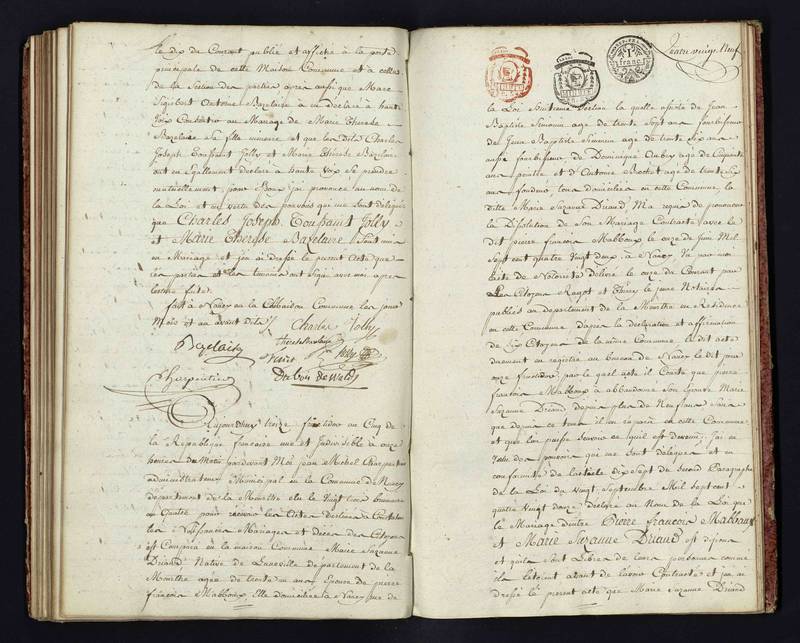 le dix de Courant publié et affiché à la porte
principale de cette Maison Commune et à celle
de la Section des parties après aussi que Marc
Sigisbert Antoine Bazelaire à un déclaré à haute
Voix Consentir au Mariage de Marie Therese
Bazelaire sa fille mineure et que lesdits Charles
Joseph Toussaint Jolly et Marie Thérese Bazelaire
ont également déclaré à haute Voix se prendre
mutuellement pour Epoux j'ai prononcé au nom de
la Loi et en vertu des pouvoirs qui me sont délégués
que Charles Joseph Toussaint Jolly
et Marie Therese Bazelaire Sont unis
en Mariage et j'ai dressé le present acte que
les parties et les témoins ont signé avec moi après
lecture faite.
fait à Nancy en la Maison Commune les jour
Mois et an avant dits
Charles Jolly
Bazelaire
Jolly
Charpentier
Dubois de
Aujourdhuy treize fructidor an Cinq de
la République française une et Indivisible à onze
heures du Matin pardevant Moi Jean Michel Charpentier
administrateur Municipal en la Commune de Nancy
département de la Meurthe élu le Vingt trois brumaire
an Quatre pour recevoir les actes destinés à Constater
les Naissances Mariages et décès des Citoyens
est Comparu en la maison Commune Marie Suzanne
Driand Native de Luneville departement de la
Meurthe agée de trente un ans Epouse de pierre
françois Mabboux, Elle domiciliée à Nancy rue de
quatre vingt Neuf
1 franc
la Loi Soixtieme Section la quelle assistée de Jean
Baptiste Simonin agé de trente Sept ans fourbisseur
de Jean Baptiste Simonin agé de trente Six ans
aussi fourbisseur de Dominique Aubry agé de Cinquante
ans peintre et d'Antoine Rochet agé de trente Six
ans fondeur tous domiciliés en cette Commune la
ditte Marie Suzanne Driand, M'a requis de prononcer
la Dissolution de Son Mariage Contracté avec le
dit pierre françois Mabboux le onze de Juin Mil
Sept cent quatre Vingt douze à Nancy Vu par moi
l'acte de Notoriété délivré le onze du Courant par
Les Citoyens Ragot et Thiery le jeune Notaires
publics au departement de la Meurthe en Résidence
en cette Commune d'après la déclaration et affirmation
de Citoyens de la même Commune le dit acte
duement en registré au bureau de Nancy le dit jour
onze fructidor par le quel acte il Conste que pierre
françois Mabboux à abbandonné Son Epouse Marie
Suzanne Driand depuis plus de Neuf ans Sans
que depuis ce tems il en reparu en cette Commune
et que l'on puisse Savoir ce qu'il est devenu; j'ai en
Vertu des pouvoirs qui me sont delegués et en
conformité de l'article dix sept du Second Paragraphe
de la Loi du Vingt Septembre Mil Sept cent
quatre Vingt douze déclaré au Nom de la Loi que
le Mariage d'entre Pierre François Mabboux
et Marie Suzanne Driand est dissous
et qu'ils sont Libres de leurs personnes comme
ils l'etoient avant de l'avoir Contracté et j'ai
dressé le présent acte que Marie Suzanne Driand